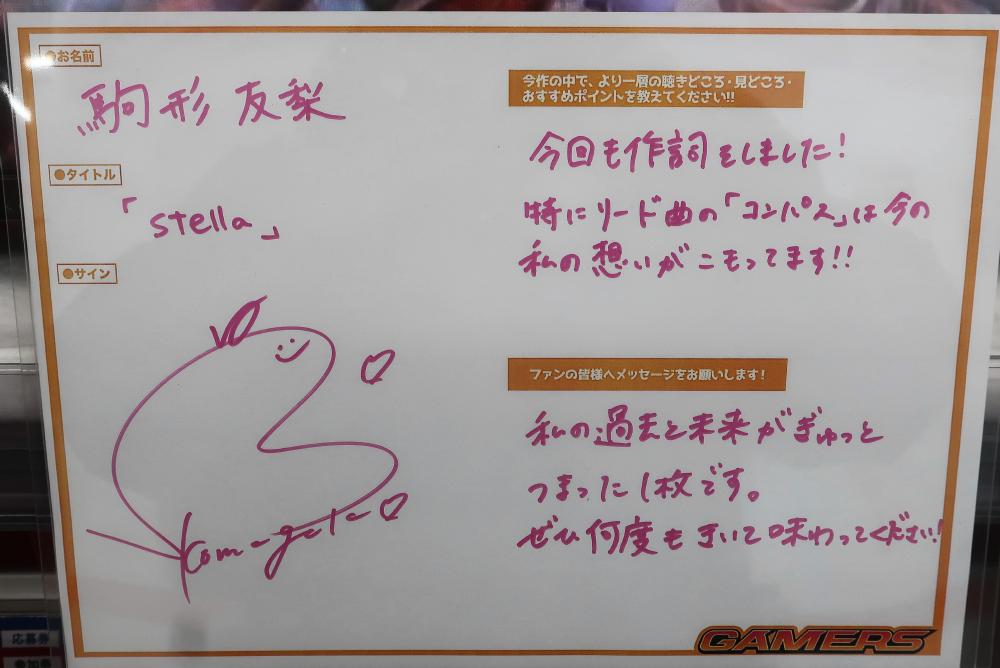 ●お名前
駒形 友梨
●タイトル
「stella」
●サイン
Komagata
今作の中で、より一層の聴きどころ・見どころ・
おすすめポイントを教えてください!!
今回も作詞をしました!
特にリード曲の「コンパス」は今の
私の想いがこもってます!!
ファンの皆様へメッセージをお願いします!
私の過去と未来がぎゅっと
つまった1枚です。
ぜひ何度もきいて味わってください!
GAMERS
応募券